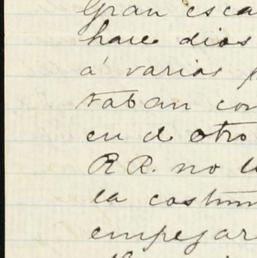 Gran esca
hace dios
á varias
taban con
en el otro
RR. no l
la costum
empezar